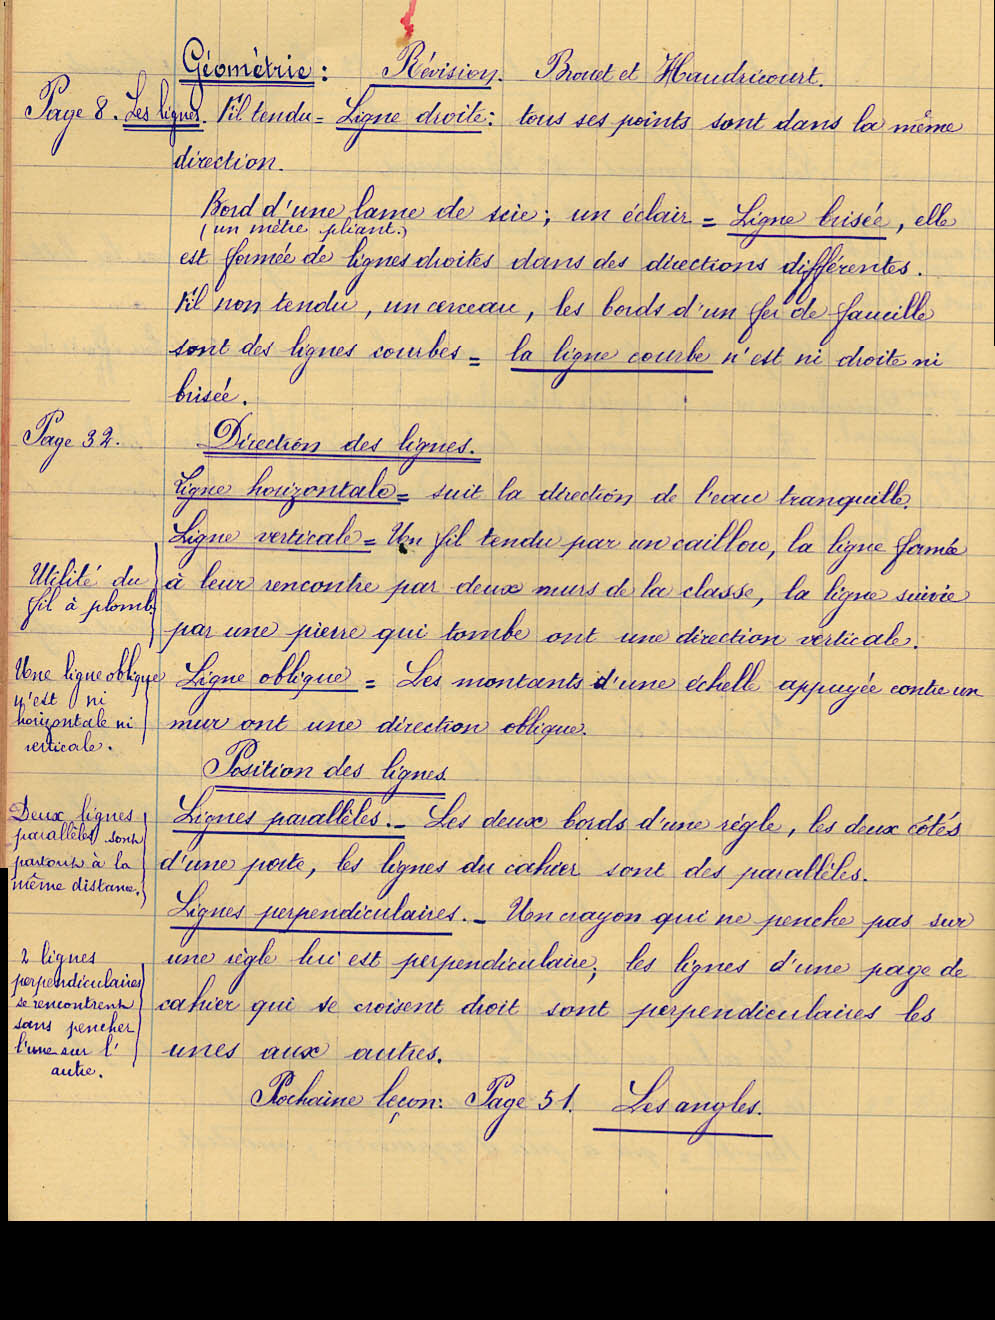 Géométrie : Révision. Brouet et Haudricourt.
Page 8. Les lignes. Fil tendu = Ligne droite : tous ses points sont dans la même
direction.
Bord d'une lame de scie ; un éclair = Ligne brisée, elle
(un mètre pliant.)
est formée de lignes droites dans des directions différentes.
Fil non tendu, un cerceau, les bords d'un fer de faucille
sont des lignes courbes = la ligne courbe n'est ni droite ni
brisée.
Page 32. Direction des lignes.
Ligne horizontale = suit la direction de l'eau tranquille.
Ligne verticale = Un fil tendu par un caillou, la ligne formée
à leur rencontre par deux murs de la classe, la ligne suivie
par une pierre qui tombe ont une direction verticale.
Utilité du
fil à plomb.
Ligne oblique = Les montants d'une échelle appuyée contre un
mur ont une direction oblique.
Une ligne oblique
n'est ni
horizontale ni
verticale.
Position des lignes
Lignes parallèles. _ Les deux bords d'une règle, les deux côtés
d'une porte, les lignes du cahier sont des parallèles.
Deux lignes
parallèles sont
partout à la
même distance.
Lignes perpendiculaires. _ Un crayon qui ne penche pas sur
une règle lui est perpendiculaire ; les lignes d'une page de
cahier qui se croisent droit sont perpendiculaires les
unes aux autres.
2 lignes
perpendiculaires
se rencontrent
sans pencher
l'une sur l'
autre.
Prochaine leçon : Page 51. Les angles.